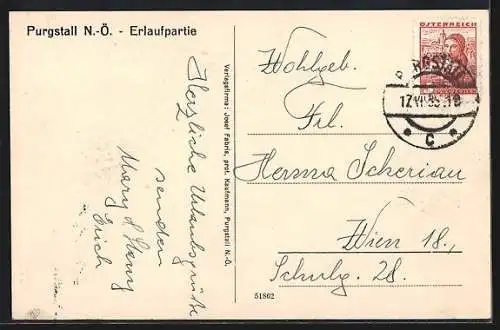 Purgstall N.-Ö. - Erlaufpartie
Herzliche Urlaubsgrüße
senden
Mary &
Erich
Verlagsfirma: Josef Fabris, prot. Kaufmann, Purgstall N.-Ö.
51862
ÖSTERREICH
C
Wohlgeb.
Frl.
Herma Scheriau
Wien 18.,
Schulg. 28.